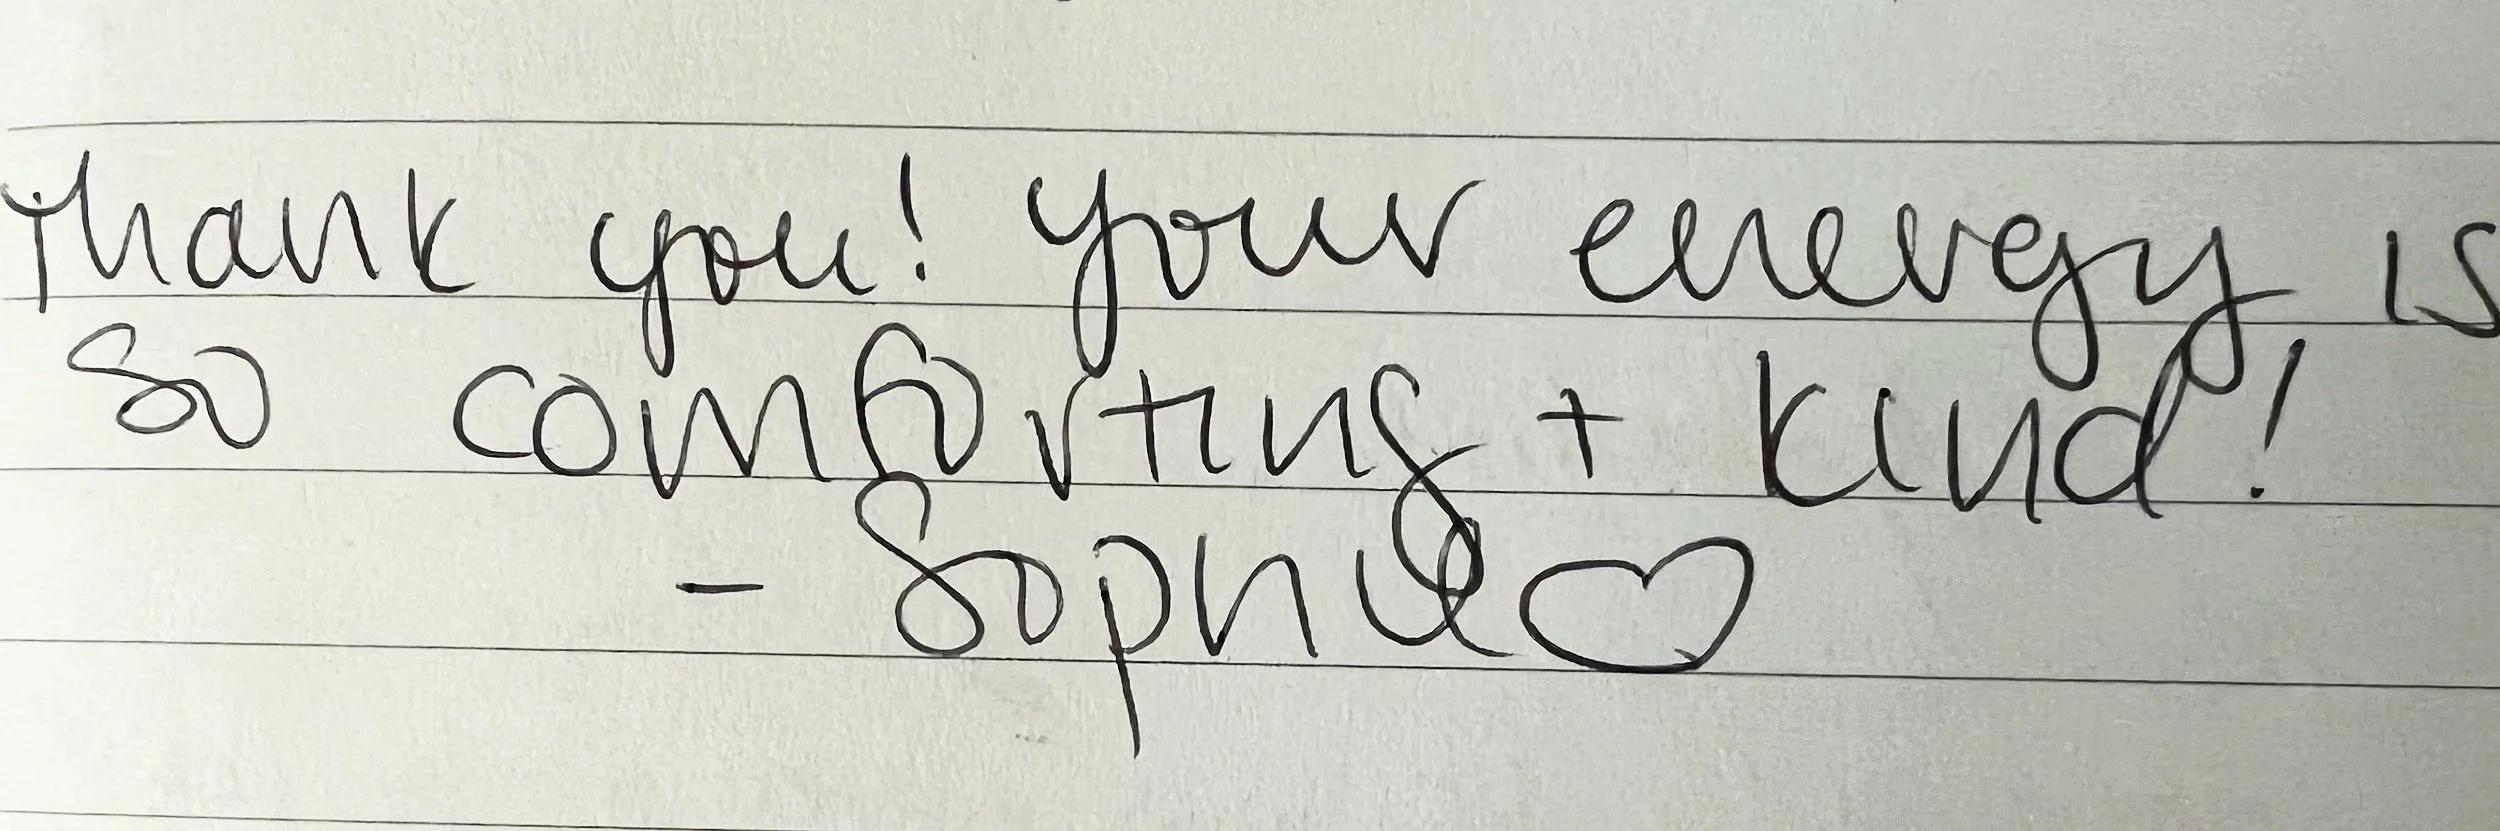 Thank you! Your energy is
so comforting + kind!
- Sophie ♡